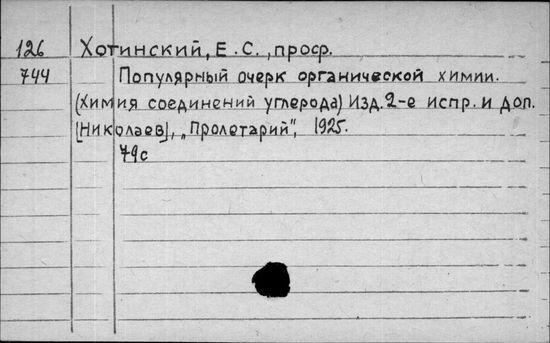 126 Хотинский, Е.С., проф.
744 Популярный очерк органической химии.
(Химия соединений углерода) Изд. 2-е испр. и доп.
[Николаев], „Пролетарий", 1925.
79с